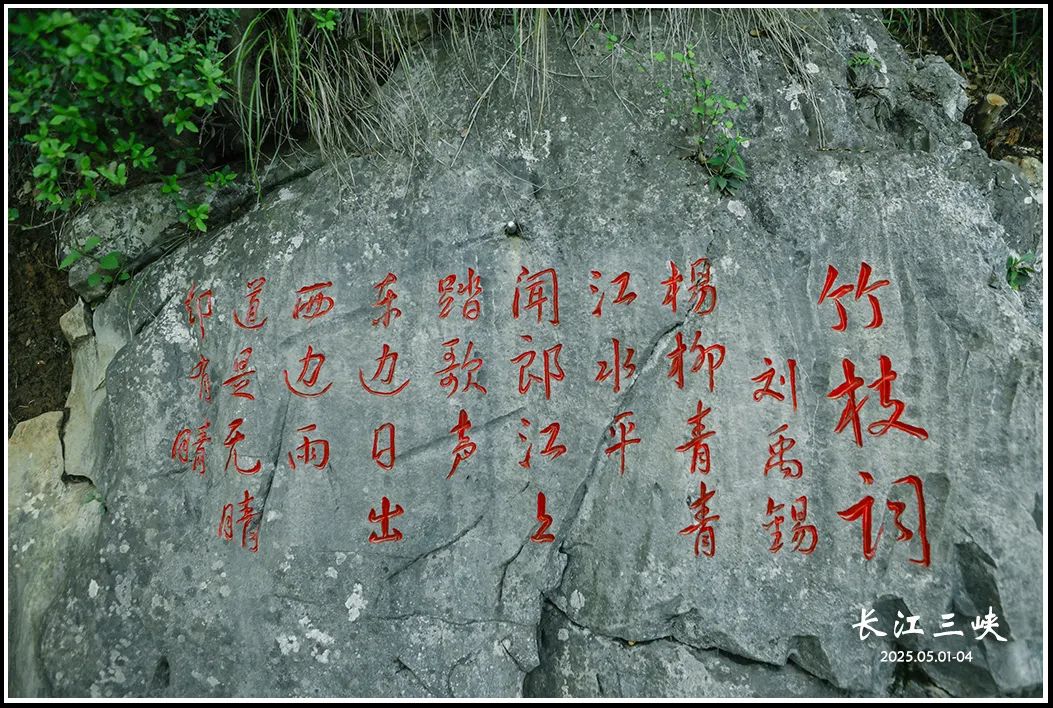 竹枝词
刘禹锡
杨柳青青
江水平
闻郎江上
踏歌声
东边日出
西边雨
道是无晴
却有晴
长江三峡
2025.05.01-04